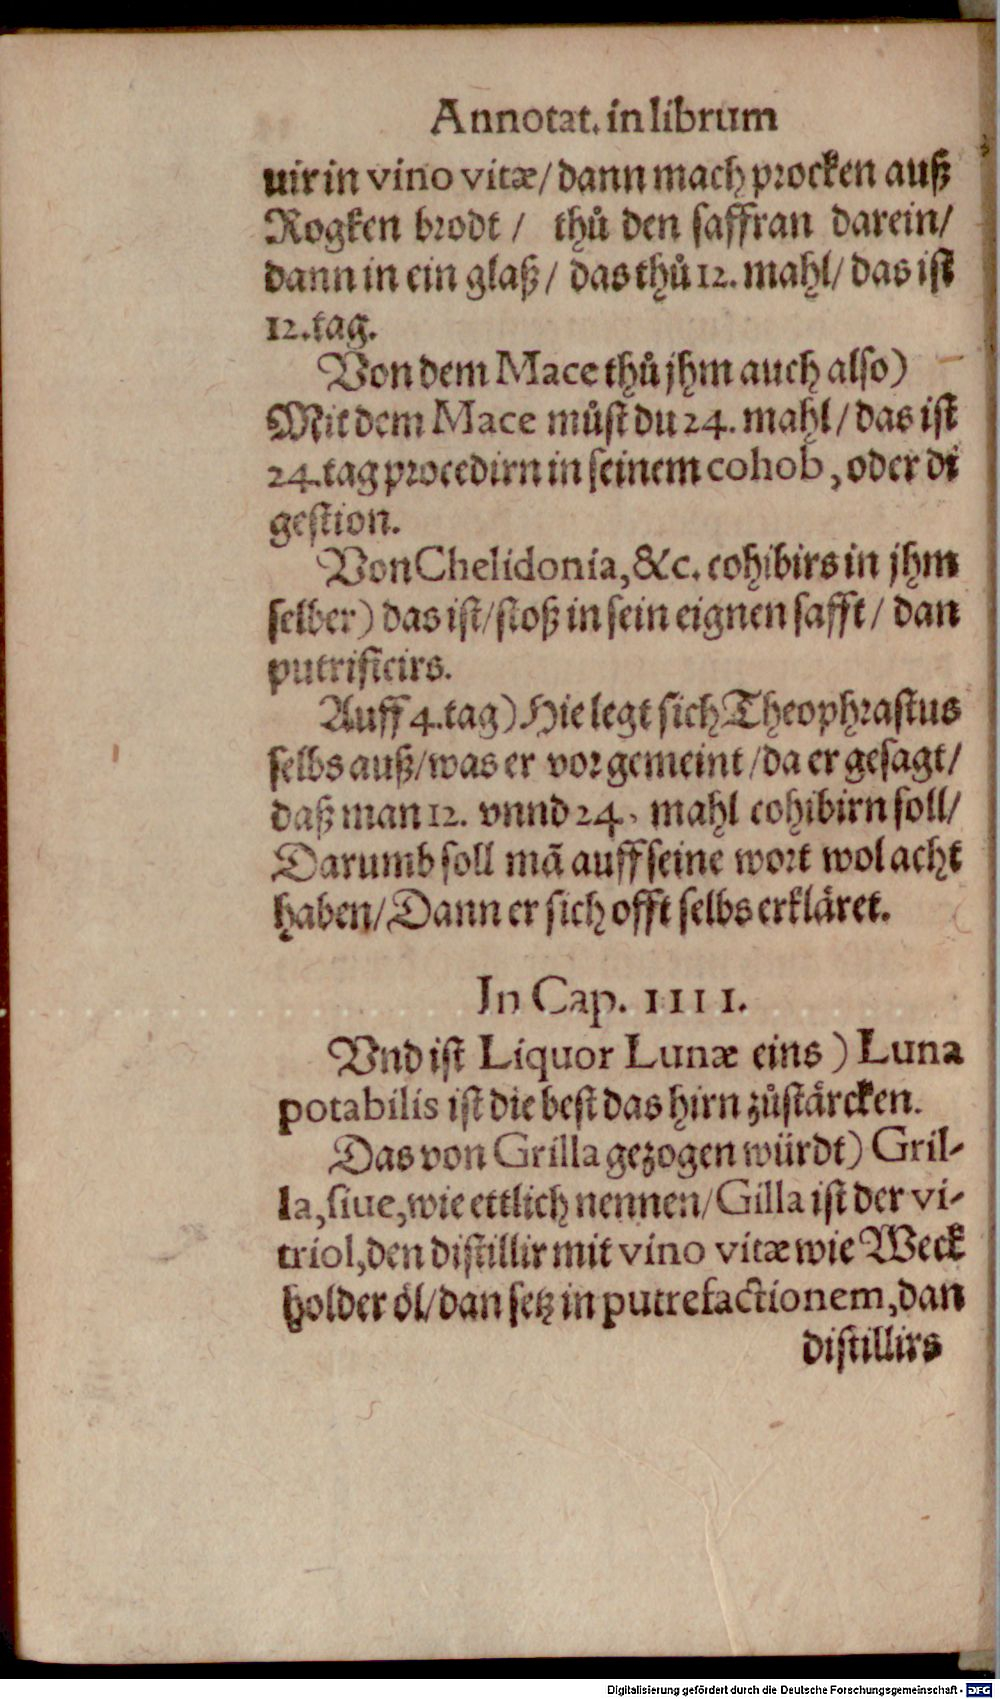 Annotat. in librum
uir in vino vitæ/ dann mach procken auß
Rogken brodt / thů den saffran darein/
dann in ein glaß/ das thů 12. mahl/ das ist
12. tag.
Von dem Mace thů jhm auch also)
Mit dem Mace můst du 24. mahl/ das ist
24. tag procedirn in seinem cohob, oder di
gestion.
Von Chelidonia, &c. cohibirs in jhm
selber) das ist/ stoß in sein eignen safft/ dan
putrificirs.
Auff 4. tag) Hie legt sich Theophrastus
selbs auß/ was er vor gemeint/ da er gesagt/
daß man 12. vnnd 24. mahl cohibirn soll/
Darumb soll mã auff seine wort wol acht
haben/ Dann er sich offt selbs erkläret.
In Cap. IIII.
Vnd ist Liquor Lunæ eins ) Luna
potabilis ist die best das hirn zůstärcken.
Das von Grilla gezogen würdt) Gril-
la, siue, wie ettlich nennen/ Gilla ist der vi-
triol, den distillir mit vino vitæ wie Weck
holder öl/ dan setz in putrefactionem, dan
distillirs
Digitalisierung gefördert durch die Deutsche Forschungsgemeinschaft - DFG